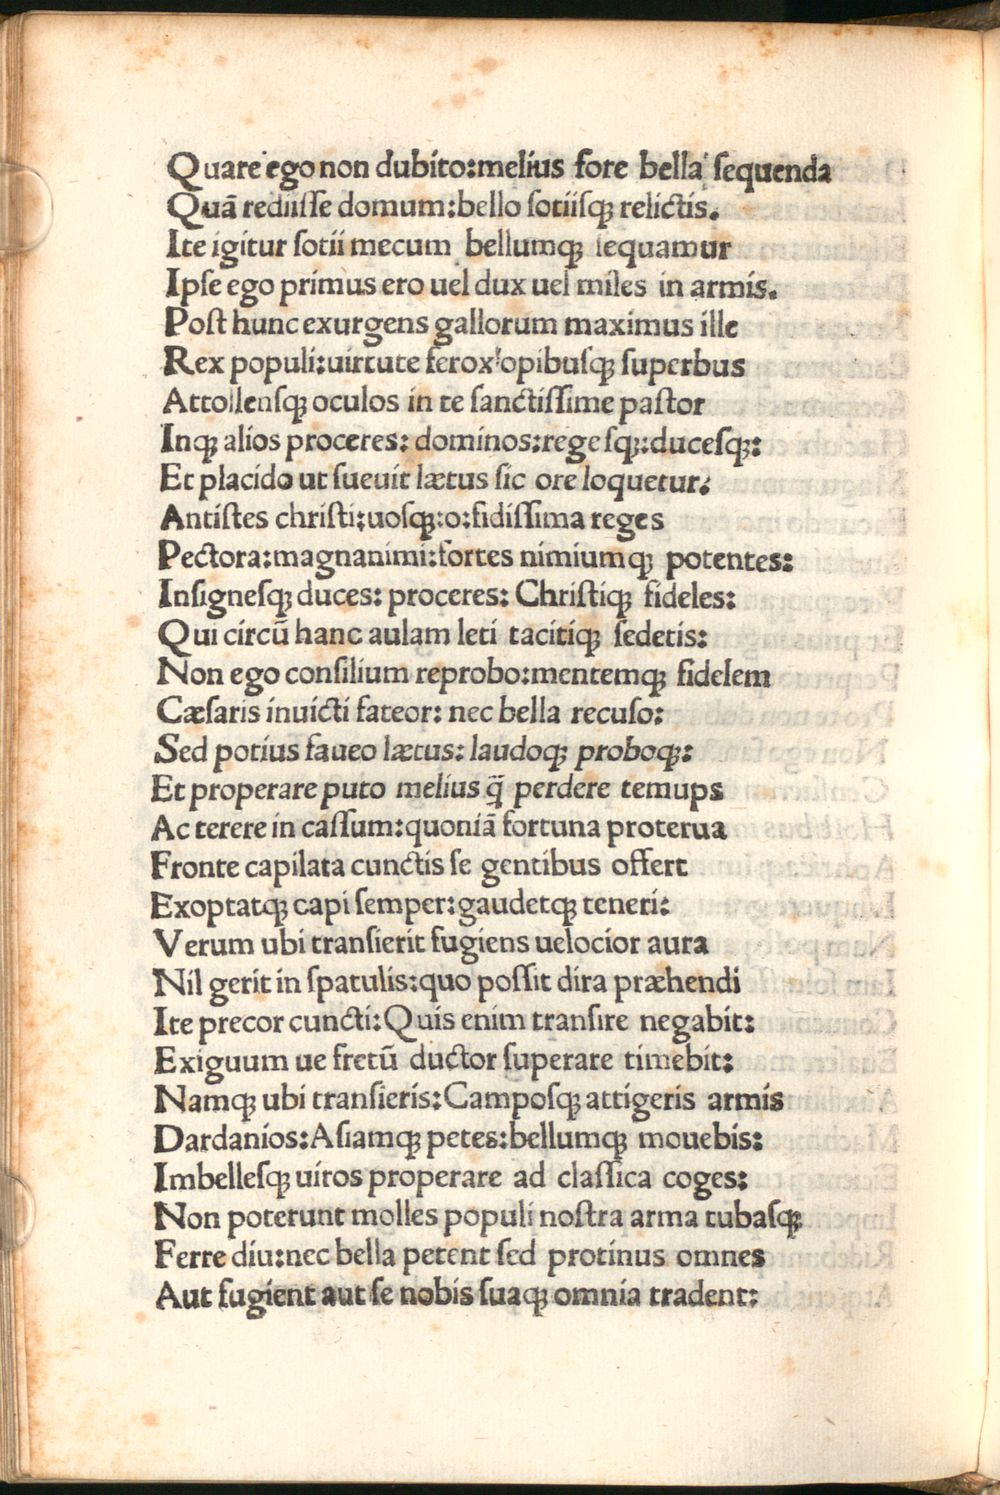 Quare ego non dubito:melius fore bella sequenda
Quā rediisse domum:bello sotiisqꝫ relictis.
Ite igitur sotii mecum bellumqꝫ sequamur
Ipse ego primus ero uel dux uel miles in armis.
Post hunc exurgens gallorum maximus ille
Rex populi:uirtute ferox opibusqꝫ superbus
Attollensqꝫ oculos in te sanctissime pastor
Inqꝫ alios proceres: dominos:regesqꝫ:ducesqꝫ:
Et placido ut sueuit lætus sic ore loquetur.
Antistes christi:uosqꝫ:o:fidissima reges
Pectora:magnanimi:fortes nimiumqꝫ potentes:
Insignesqꝫ duces: proceres: Christiqꝫ fideles:
Qui circū hanc aulam leti tacitiqꝫ sedetis:
Non ego consilium reprobo:mentemqꝫ fidelem
Cæsaris inuicti fateor: nec bella recuso:
Sed potius faueo lætus: laudoqꝫ proboqꝫ:
Et properare puto melius q̄ perdere temups
Ac terere in cassum:quoniā fortuna proterua
Fronte capilata cunctis se gentibus offert
Exoptatqꝫ capi semper:gaudetqꝫ teneri:
Verum ubi transierit fugiens uelocior aura
Nil gerit in spatulis:quo possit dira præhendi
Ite precor cuncti:Quis enim transire negabit:
Exiguum ue fretū ductor superare timebit:
Namqꝫ ubi transieris:Camposqꝫ attigeris armis
Dardanios:Asiamqꝫ petes:bellumqꝫ mouebis:
Imbellesqꝫ uiros properare ad classica coges:
Non poterunt molles populi nostra arma tubasqꝫ
Ferre diu:nec bella petent sed protinus omnes
Aut fugient aut se nobis suaqꝫ omnia tradent: